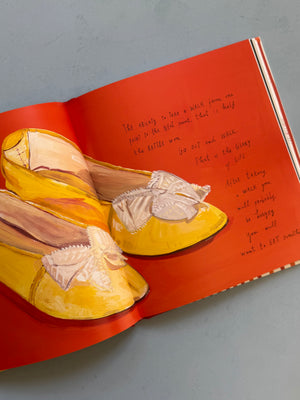 The ability to take a WALK from one
point to the next point, that is half
the battle won.
GO OUT AND WALK.
That is the glory
of LIFE.
After taking
a walk you
will probably
be hungry
you will
want to EAT